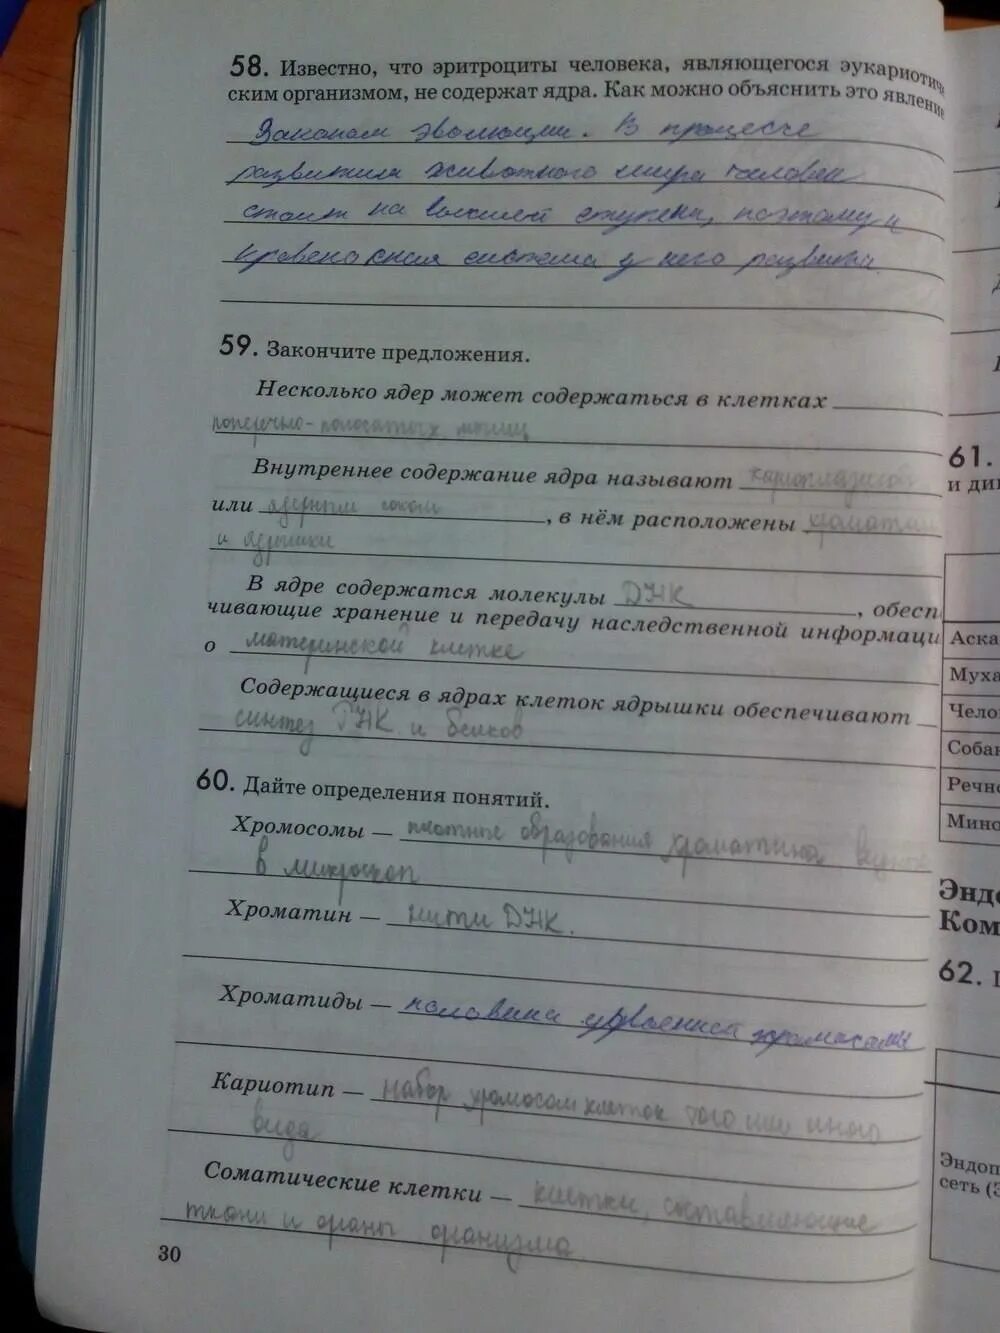 58. Известно, что эритроциты человека, являющегося эукариотиче
ским организмом, не содержат ядра. Как можно объяснить это явление
Законам эволюции. В процессе
развития животного мира человек
стоит на высшей ступени, поэтому и
кровеносная система у него развита.
59. Закончите предложения.
Несколько ядер может содержаться в клетках
поперечно-полосатых мышц
Внутреннее содержание ядра называют кариоплазмой
или ядерным соком, в нём расположены хроматин
и ядрышки
В ядре содержатся молекулы ДНК, обесп
чивающие хранение и передачу наследственной информаци
о материнской клетке
Содержащиеся в ядрах клеток ядрышки обеспечивают
синтез РНК и белков
60. Дайте определения понятий.
Хромосомы — плотные образования хроматина
в микроскоп
Хроматин — нити ДНК.
Хроматиды — половина удвоенной хромосомы
Кариотип — набор хромосом клеток того или иного
вида
Соматические клетки — клетки, составляющие
ткани и органы организма
30
61.
и ди
Аска
Муха
Чело
Собак
Речно
Мино
Эндо
Ком
62.
Эндоп
сеть (Э